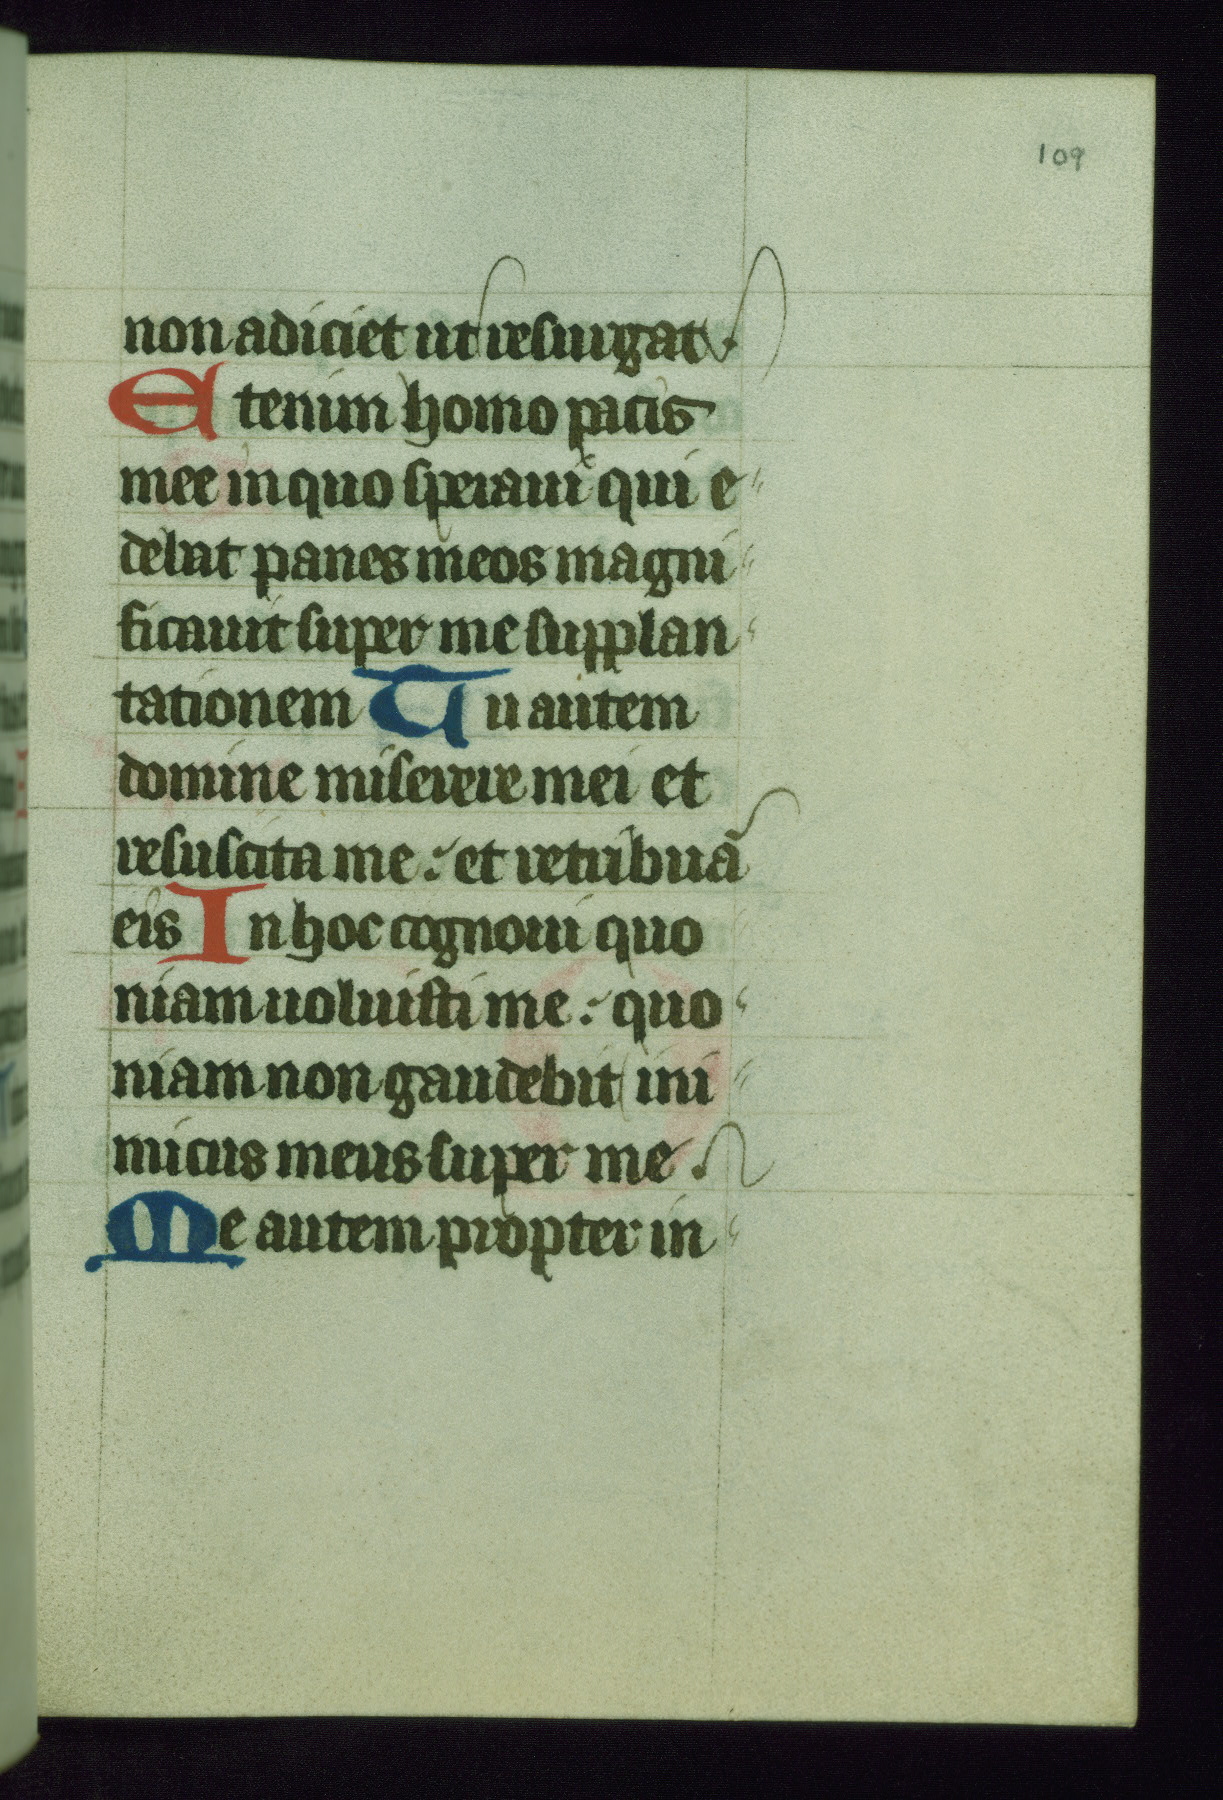 109
non adiciet ut resurgat.
Etenim homo pacis
mee in quo speraui qui e
debat panes meos magni
ficauit super me supplan
tationem Tu autem
domine miserere mei et
resuscita me : et retribuā
eis In hoc cognoui quo
niam uoluisti me : quo
niam non gaudebit ini
micus meus super me .
Me autem propter in